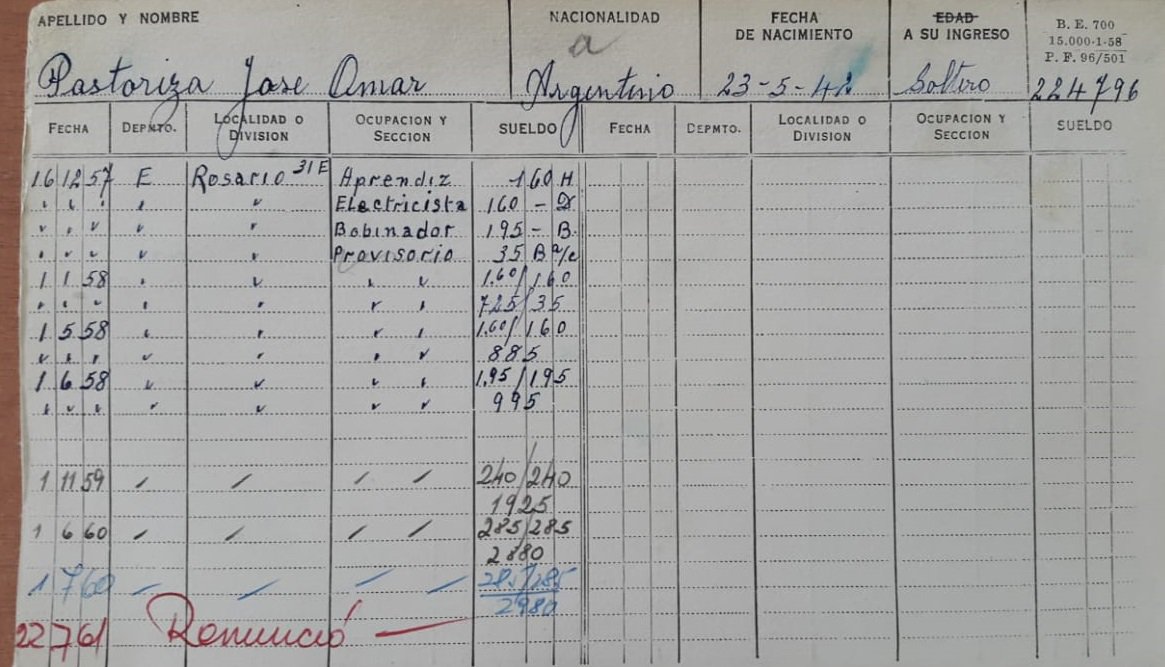 APELLIDO Y NOMBRE NACIONALIDAD FECHA DE NACIMIENTO EDAD A SU INGRESO B. E. 700
15.000-1-58
P. F. 96/501
a
Pastoriza Jose Omar Argentino 23-5-42 Soltero 224796
FECHA DEPMTO. LOCALIDAD O DIVISION OCUPACION Y SECCION SUELDO FECHA DEPMTO. LOCALIDAD O DIVISION OCUPACION Y SECCION SUELDO
16 12 57 E Rosario 31E Aprendiz 160 H
" " " " " Electricista 160 -
" " " " " Bobinador 195 - B.
" " " " " Provisorio 35 B a/c
1 1 58 " " " " 1.60/160
" " " " " " " 725/35
1 5 58 " " " " 1.60/160
" " " " " " " 885
1 6 58 " " " " 1.95/195
" " " " " " " 995
1 11 59 / / / / 240/240
1925
1 6 60 / / / / 285/285
2880
1 7 60 / / / / 285/285
2980
22 7 61 Renunció —